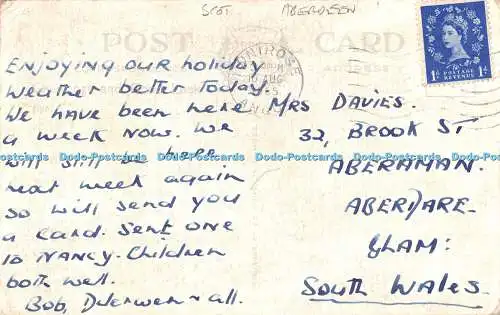 SCOT ABERDEEN
POST CARD
MONTROSE
1D POSTAGE REVENUE 1D
ENJOYING OUR HOLIDAY
WEATHER BETTER TODAY.
WE HAVE BEEN HERE
A WEEK NOW. WE
WILL STILL BE HERE
NEXT WEEK AGAIN
SO WILL SEND YOU
A CARD. SENT ONE
TO NANCY. CHILDREN
BOTH WELL.
BOB, DILERWEN & ALL.
MRS DAVIES.
32, BROOK ST
ABERAMAN.
ABERDARE.
GLAM:
SOUTH WALES.
Dodo-Postcards Dodo-Postcards Dodo-Postcards Dodo-Postcards Dodo-Postcards Dodo-Postcards